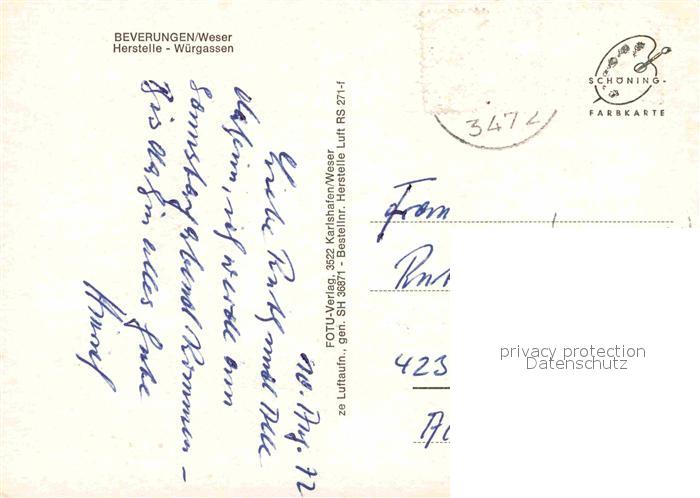 BEVERUNGEN/Weser
Herstelle - Würgassen
SCHÖNING-
FARBKARTE
3472
FOTU-Verlag, 3522 Karlshafen/Weser
ze Luftaufn., gen. SH 36871 - Bestellnr. Herstelle Luft RS 271-f
Aug. 72
Liebe Ruth und
ich werde am
Samstag abend kommen -
Bis dahin alles Gute
Frau
423
privacy protection
Datenschutz